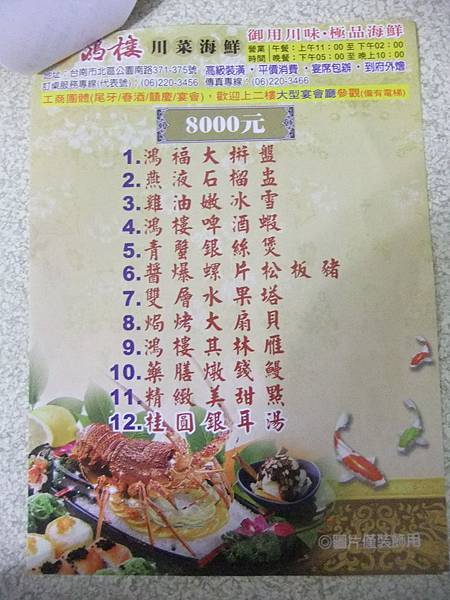 鴻樓 川菜海鮮
御用川味•極品海鮮
營業 午餐：上午11：00 至 下午02：00
時間 晚餐：下午05：00 至 晚上10：00
地址：台南市北區公園南路371-375號
訂桌服務專線(代表號)：(06)220-3456
高級裝潢•平價消費•宴席包辦•到府外燴
傳真專線：(06)220-3466
工商團體(尾牙/春酒/囍慶/宴會)，歡迎上二樓大型宴會廳參觀(備有電梯)
8000元
1.鴻福大拼盤
2.燕液石榴盅
3.雞油嫩冰雪
4.鴻樓啤酒蝦
5.青蟹銀絲煲
6.醬爆螺片松板豬
7.雙層水果塔
8.焗烤大扇貝
9.鴻樓其林雁
10.藥膳燉錢鰻
11.精緻美甜點
12.桂圓銀耳湯
◎圖片僅裝飾用